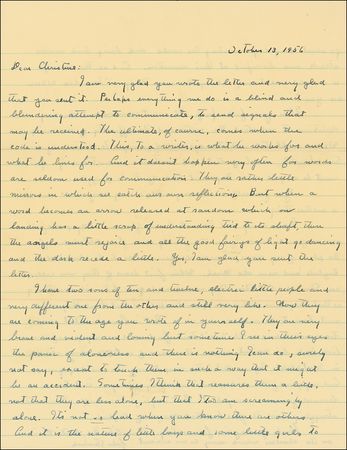 October 13, 1956
Dear Christine:
I am very glad you wrote the letter and very glad
that you sent it. Perhaps everything we do is a blind and
blundering attempt to communicate, to send signals that
may be received. The ultimate, of course, comes when the
code is understood. This, to a writer, is what he works for and
what he lives for. And it doesn't happen very often for words
are seldom used for communication. They are rather little
mirrors in which we catch our own reflections. But when a
word becomes an arrow released at random which on
landing has a little scrap of understanding tied to its shaft, then
the angels must rejoice and all the good fairies of light go dancing
and the dark recede a little. Yes, I am glad you sent the
letter.
I have two sons of ten and twelve, electric little people and
very different one from the other and still very like. Now they
are coming to the age you wrote of in yourself. They are very
brave and violent and loving but sometimes I see in their eyes
the panic of aloneness and there is nothing I can do, surely
not say, except to touch them in such a way that it might
be an accident. Sometimes I think that reassures them a little,
not that they are less alone, but that I too am screamingly
alone. It's not so bad when you know there are others.
And it is the nature of little boys and some little girls to